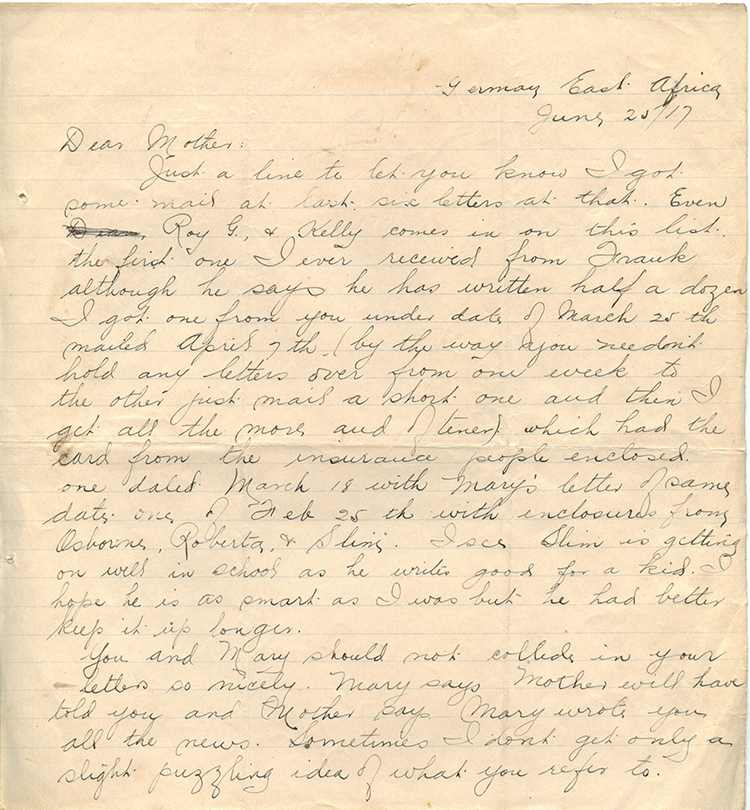 German East Africa
June 25/17
Dear Mother:
Just a line to let you know I got
some mail at last, six letters at that. Even
Roy G., & Kelly comes in on this list.
the first one I ever received from Frank
although he says he has written half a dozen
I got one from you under date of March 25th
mailed April 7th. (by the way you needn't
hold any letters over from one week to
the other just mail a short one and then I
get all the more and oftener) which had the
card from the insurance people enclosed.
one dated March 18 with Mary's letter of same
date one of Feb 25th with enclosures from
Osborne, Roberta, & Slim. I see Slim is getting
on well in school as he writes good for a kid. I
hope he is as smart as I was but he had better
keep it up longer.
You and Mary should not collide in your
letters so nicely. Mary says Mother will have
told you and Mother says Mary wrote you
all the news. Sometimes I dont get only a
slight puzzling idea of what you refer to.